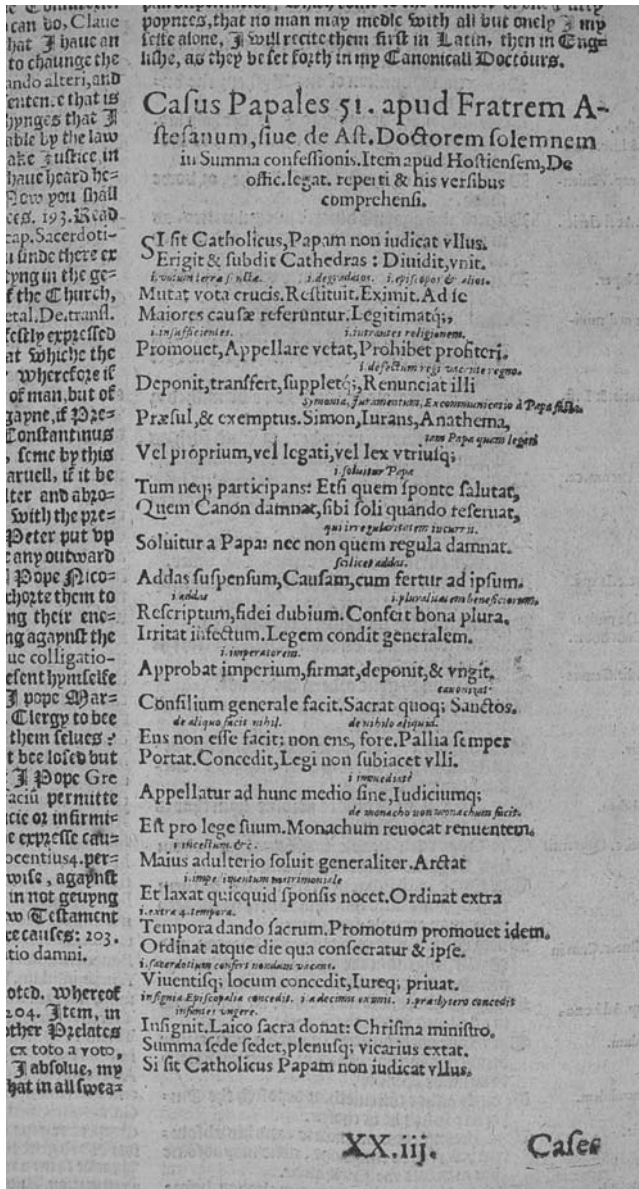 can do, Claue
hat I haue an
to chaunge the
ando alteri, and
enten.e that is
hynges that I
able by the law
ake Justice in
haue heard he=
Now you shall
ces. 193. Read
cap. Sacerdoti-
u finde there ex
tyng in the ge=
f the Church,
etal. De. transl.
festly expressed
at whiche the
wherefore if
of man, but of
gayne, if Pre=
Constantinus
, some by this
aruell, if it be
lter and abro=
with the pre=
Peter put vp
e any outward
Pope Nico=
chorte them to
ng their ene=
ng agaynst the
ue colligatio-
esent hymselfe
I pope Mar=
Clergy to bee
them selues ?
t bee losed but
I Pope Gre
aciū permitte
cie or infirmi=
e expresse cau=
ocentius 4. per=
wise, agaynst
in not geuyng
w Testament
ce causes: 203.
tio damni.
oted. Whereof
204. Item, in
other Prelates
ex toto a voto,
I absolue, my
hat in all swea=
poyntes, that no man may medle with all but onely I my
selfe alone, I will recite them first in Latin, then in Eng=
lishe, as they be set forth in my Canonicall Doctours.
Casus Papales 51. apud Fratrem A-
stesanum, siue de Ast. Doctorem solemnem
in Summa confessionis. Item apud Hostiensem, De
offic. legat. reperti & his versibus
comprehensi.
SI sit Catholicus, Papam non iudicat vllus.
Erigit & subdit Cathedras : Diuidit, vnit.
i. votum terræ sanctæ. i. degradatos. i. episcopos & alios.
Mutat vota crucis. Restituit. Eximit. Ad se
Maiores causæ referuntur. Legitimatq;,
i. insufficientes. i. intrantes religionem.
Promouet, Appellare vetat, Prohibet profiteri.
i. defectum regi vacante regno.
Deponit, transfert, suppletq;, Renunciat illi
Symonia, Juramentum, Excommunicatio à Papa
Præsul, & exemptus. Simon, Iurans, Anathema,
tam Papa quam legati
Vel proprium, vel legati, vel lex vtriusq;
i. soluitur Papa
Tum neq; participans: Etsi quem sponte salutat,
Quem Canon damnat, sibi soli quando reseruat,
qui irregularitatem incurrit.
Soluitur a Papa: nec non quem regula damnat.
scilicet addas.
Addas suspensum, Causam, cum fertur ad ipsum.
i. addas i. pluralitatem beneficiorum.
Rescriptum, fidei dubium. Confert bona plura.
Irritat infectum. Legem condit generalem.
i. imperatorem.
Approbat imperium, firmat, deponit, & vngit.
canonizat
Consilium generale facit. Sacrat quoq; Sanctos.
de aliquo facit nihil. de nihilo aliquid.
Ens non esse facit; non ens, fore. Pallia semper
Portat. Concedit, Legi non subiacet vlli.
i immediatè
Appellatur ad hunc medio sine, Iudiciumq;
de monacho non monachum facit.
Est pro lege suum. Monachum reuocat renuentem.
i incestum. &c.
Maius adulterio soluit generaliter. Arctat
i. impedimentum matrimoniale
Et laxat quicquid sponsis nocet. Ordinat extra
i. extra 4. tempora.
Tempora dando sacrum. Promotum promouet idem.
Ordinat atque die qua consecratur & ipse.
i. sacerdotium confert nondum vacans.
Viuentisq; locum concedit, Iureq; priuat.
insignia Episcopalia concedit. i a decimis eximit. i. præsbytero concedit
infantes vngere.
Insignit. Laico sacra donat: Chrisma ministro.
Summa sede sedet, plenusq; vicarius extat.
Si sit Catholicus Papam non iudicat vllus.
XX.iij. Cases